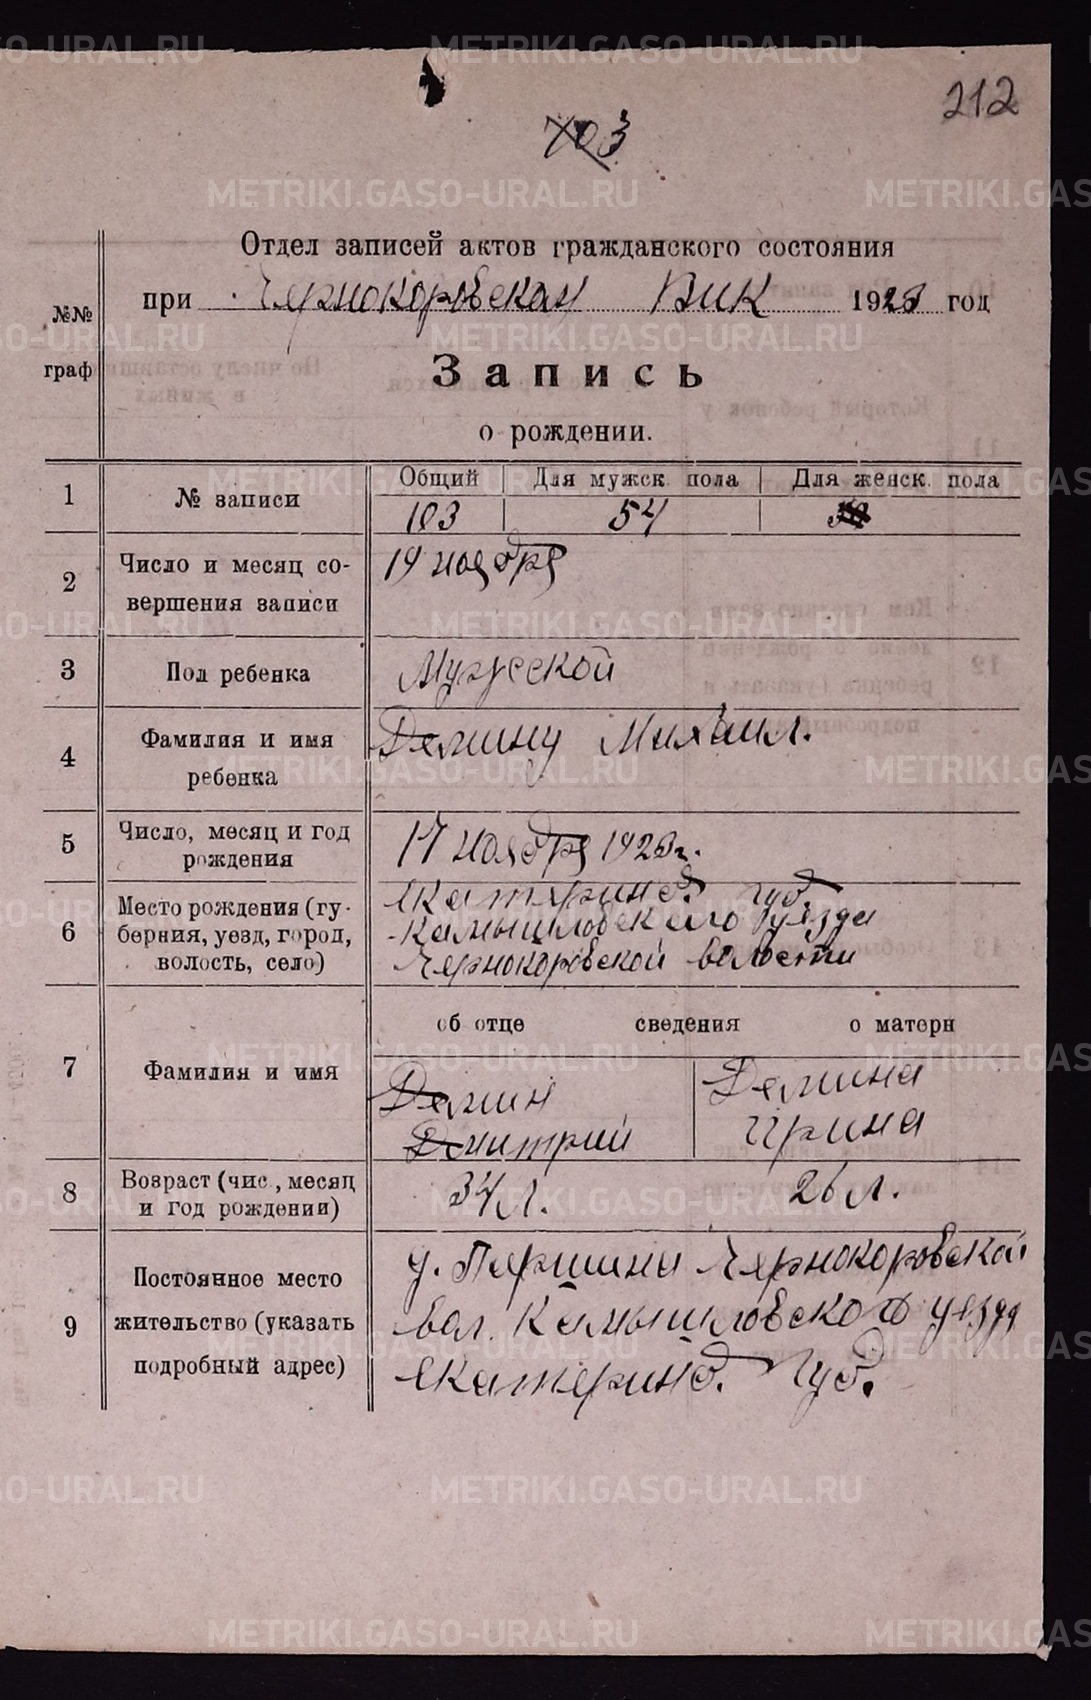 212
103
Отдел записей актов гражданского состояния
при Чернокоровская Вик 1923 год
№№
граф
Запись
о рождении.
1 № записи Общий Для мужск. пола Для женск. пола
103 54
2 Число и месяц со-
вершения записи
19 ноября
3 Пол ребенка Мужеской
4 Фамилия и имя
ребенка
Демину Михаил.
5 Число, месяц и год
рождения
17 ноября 1923 г.
6 Место рождения (гу-
берния, уезд, город,
волость, село)
Екатеринб. губ.
Камышловского уезда
Чернокоровской волости
об отце сведения о матери
7 Фамилия и имя
Демин Демина
Дмитрий Ирина
8 Возраст (чис., месяц
и год рождении)
34 л. 26 л.
9 Постоянное место
жительство (указать
подробный адрес)
д. Паршина Чернокоровской
вол. Камышловского уезда
Екатеринб. губ.
METRIKI.GASO-URAL.RU